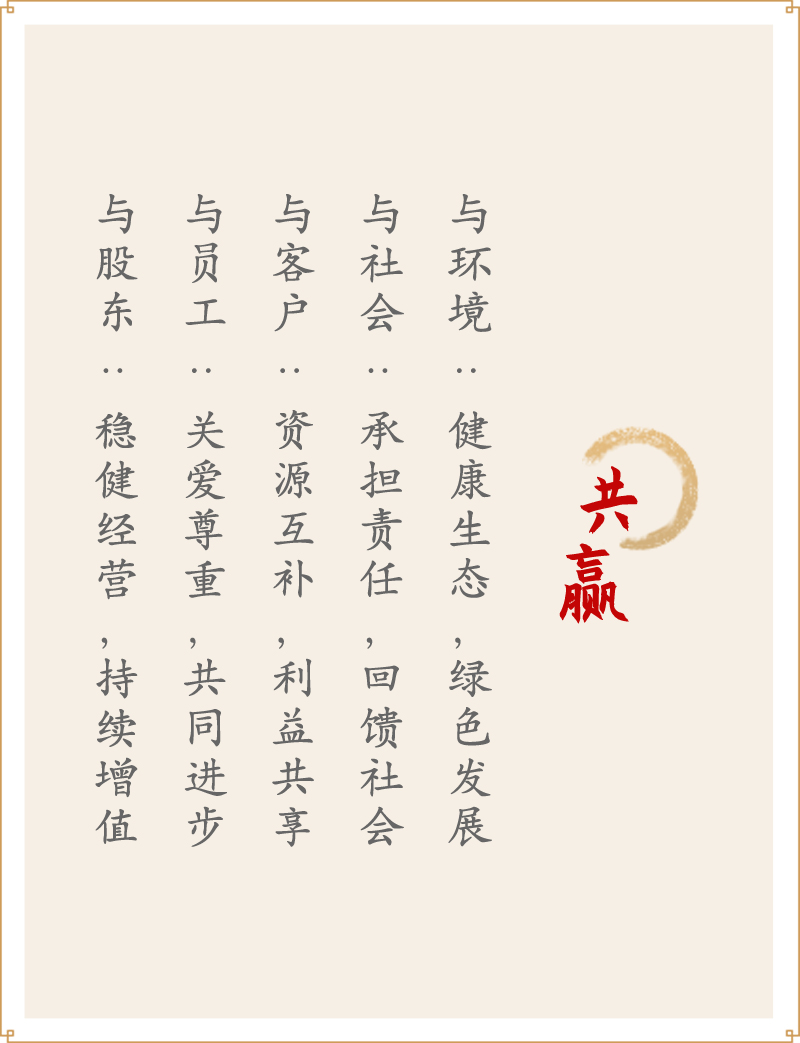 共赢
与环境：健康生态，绿色发展
与社会：承担责任，回馈社会
与客户：资源互补，利益共享
与员工：关爱尊重，共同进步
与股东：稳健经营，持续增值